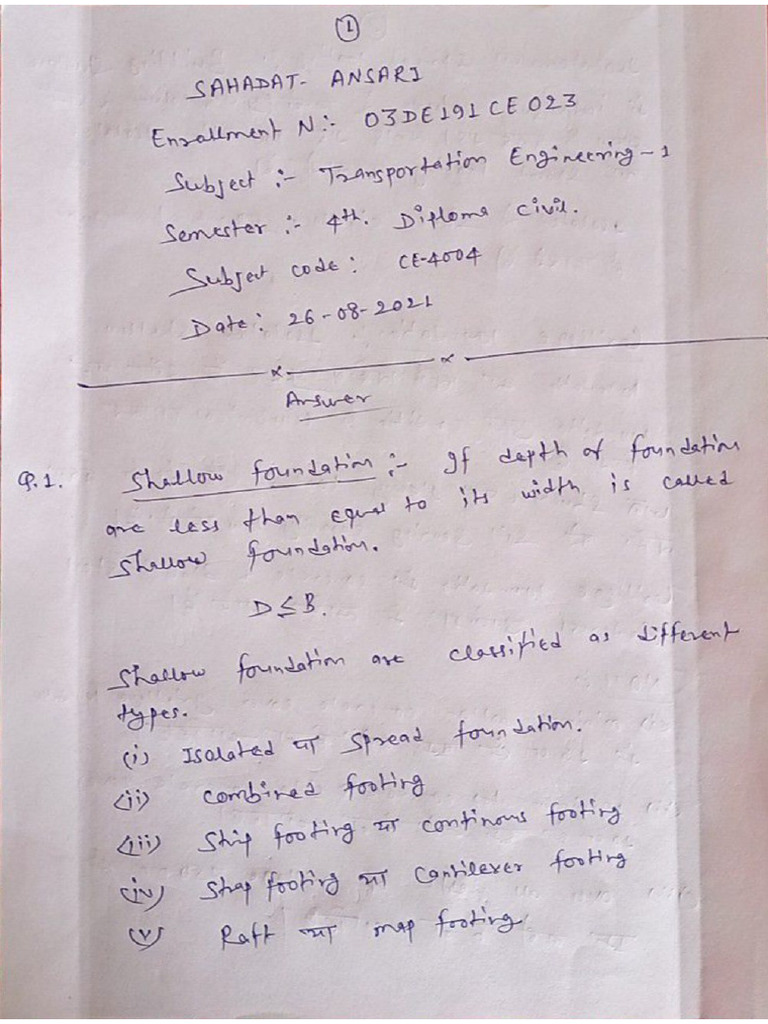 1
SAHADAT- ANSARI
Enrallment N:- 03DE191CE023
Subject :- Transportation Engineering-1
Semester :- 4th. Diploma civil.
Subject code: CE-4004
Date: 26-08-2021
Answer
Q.1. Shallow foundation :- If depth of foundation
are less than equal to its width is called
Shallow foundation.
D≤B.
Shallow foundation are classified as different
types.
(i) Isolated या Spread foundation.
(ii) combined footing
(iii) Strip footing या continous footing
(iv) Strap footing या Cantilever footing
(v) Raft या map footing